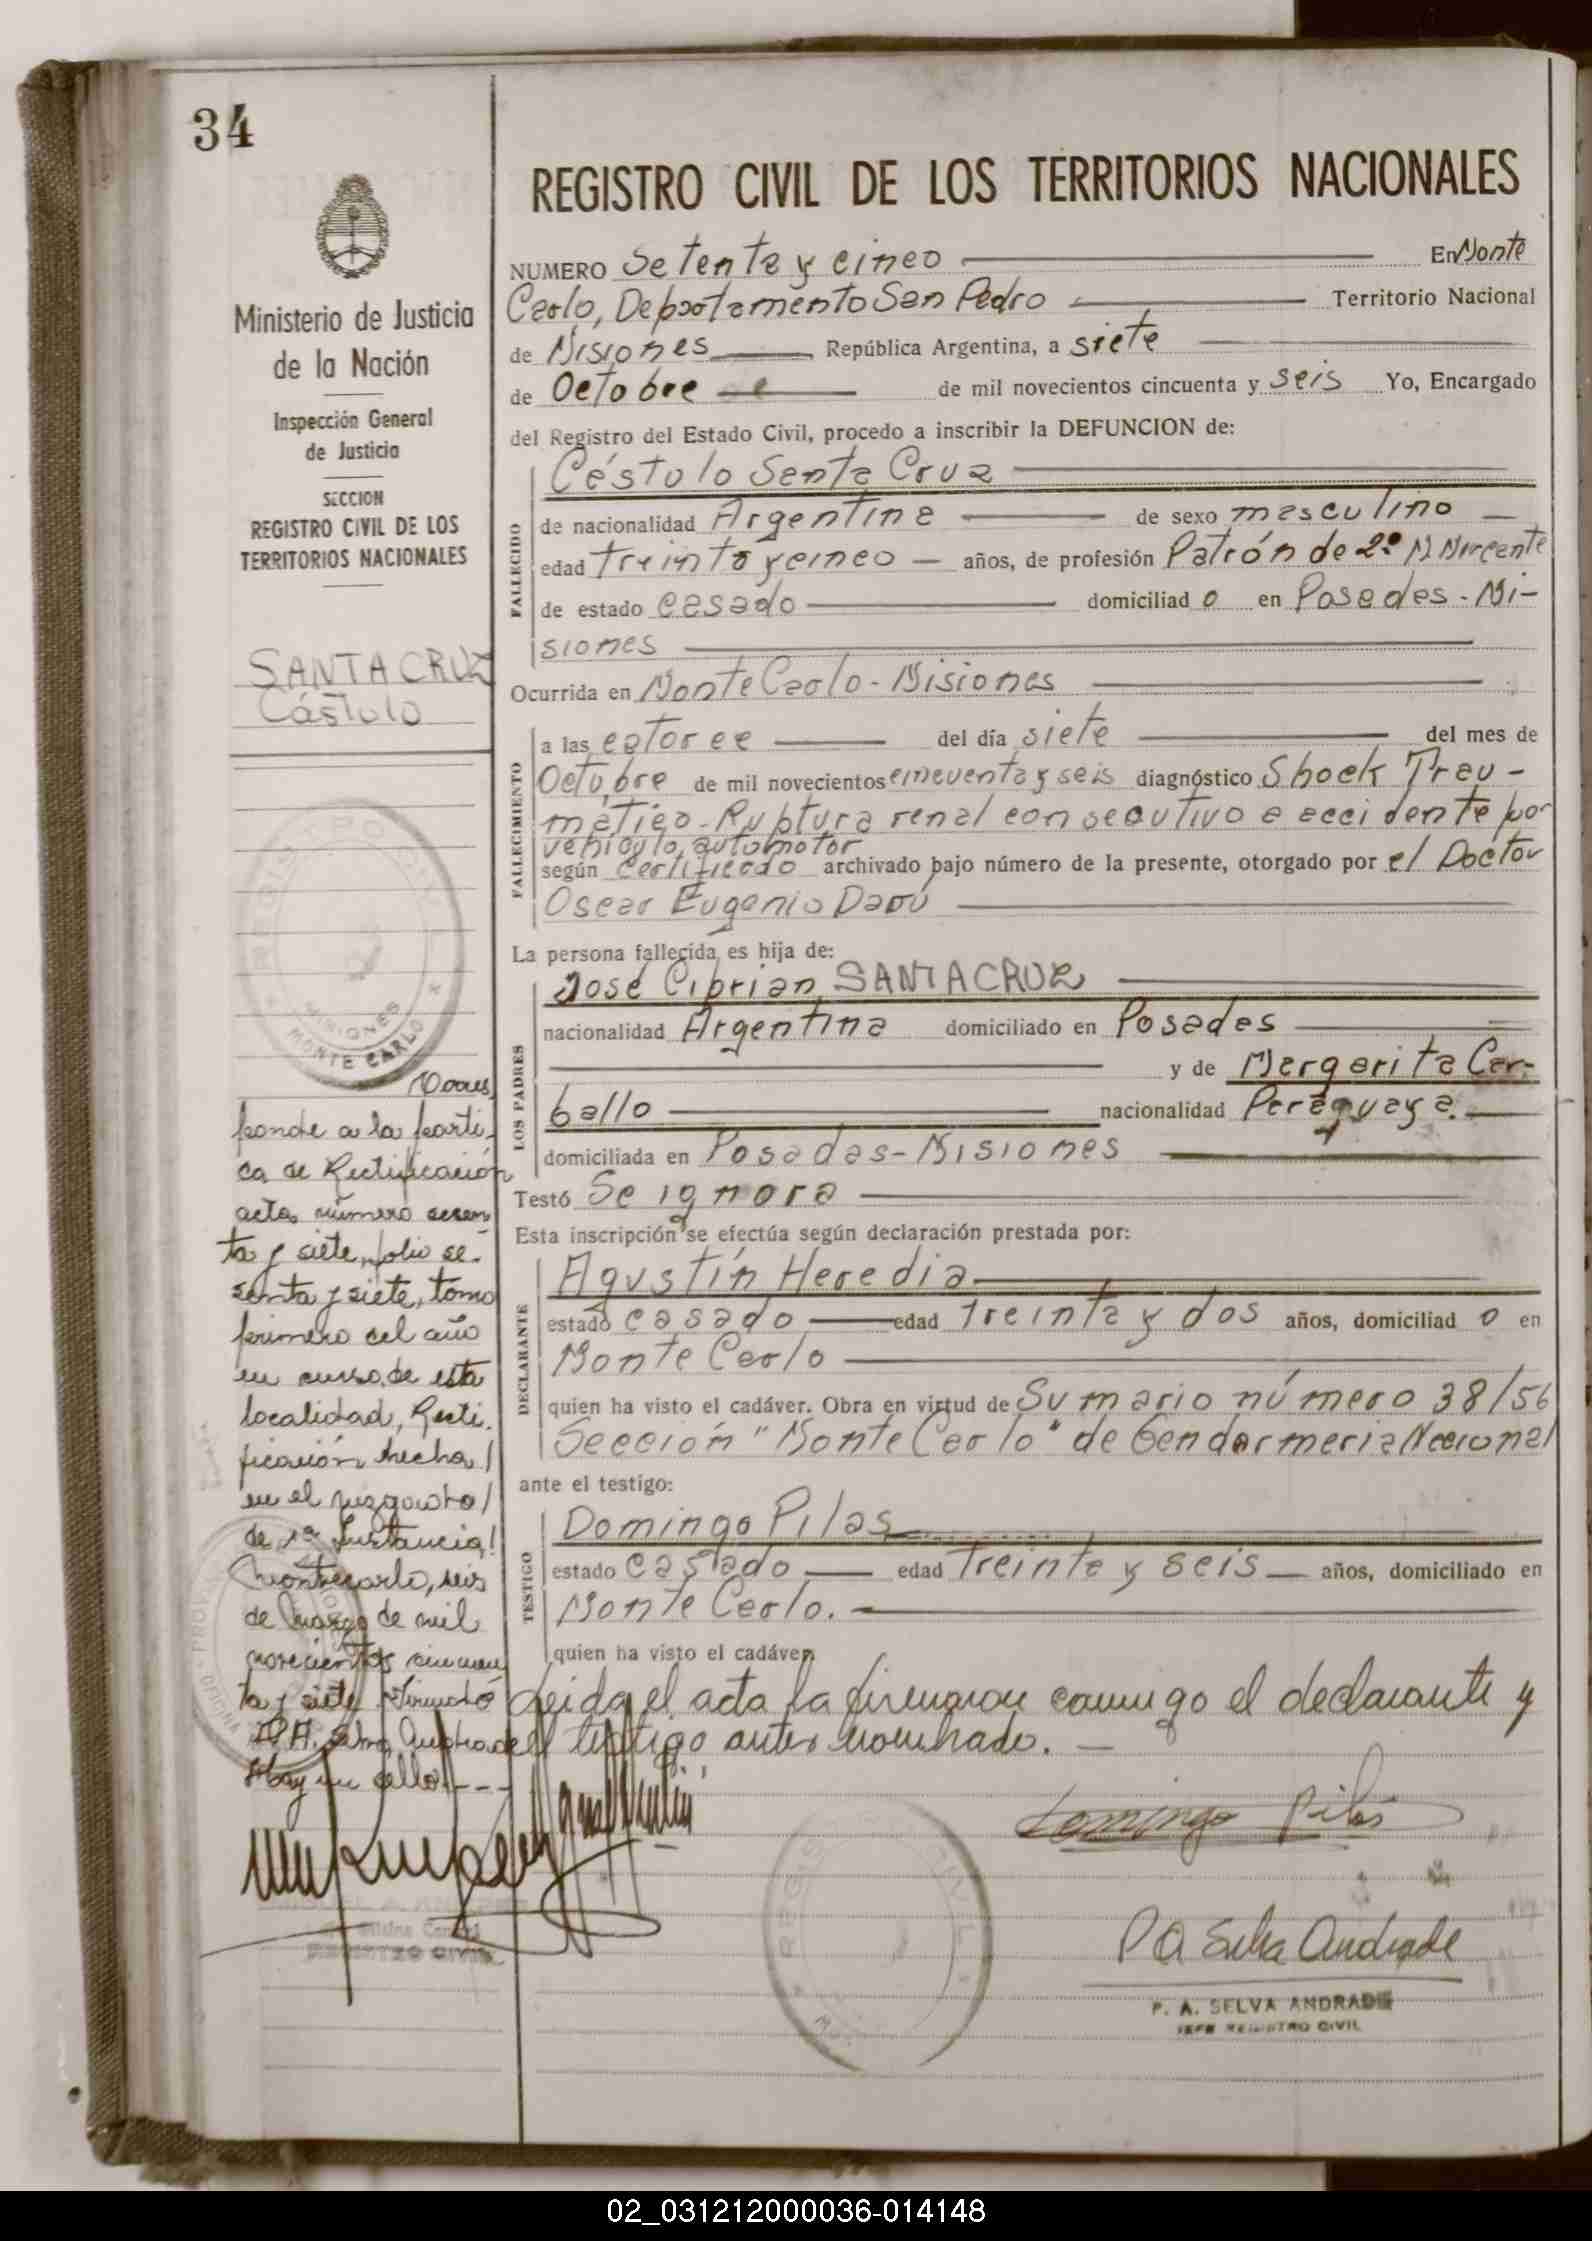 34
Ministerio de Justicia
de la Nación
Inspección General
de Justicia
SECCION
REGISTRO CIVIL DE LOS
TERRITORIOS NACIONALES
SANTACRUZ
Cástulo
REGISTRO CIVIL
MISIONES
MONTE CARLO
Corres
ponde a la parti-
da de Rectificación
acta número sesen
ta y siete, folio se-
senta y siete, tomo
primero del año
en curso, de esta
localidad, Recti-
ficación hecha
en el juzgado
de 1ª Instancia
Montecarlo, seis
de Marzo de mil
novecientos cincuen
ta y siete Firmado
P.A. Selva Andrade
Hay un sello.---
REGISTRO CIVIL
REGISTRO CIVIL DE LOS TERRITORIOS NACIONALES
NUMERO Setenta y cinco En Monte
Carlo, Departamento San Pedro Territorio Nacional
de Misiones República Argentina, a siete
de Octubre de mil novecientos cincuenta y seis Yo, Encargado
del Registro del Estado Civil, procedo a inscribir la DEFUNCION de:
FALLECIDO
Cástulo Santa Cruz
de nacionalidad Argentina de sexo masculino
edad treinta y cinco años, de profesión Patrón de 2ª M. Mercante
de estado casado domiciliado en Posadas - Mi-
siones
Ocurrida en Monte Carlo - Misiones
FALLECIMIENTO
a las catorce del día siete del mes de
Octubre de mil novecientos cincuenta y seis diagnóstico Shock Trau-
mático - Ruptura renal consecutivo a accidente por
vehículo automotor
según certificado archivado bajo número de la presente, otorgado por el Doctor
Oscar Eugenio Darú
La persona fallecida es hija de:
LOS PADRES
José Ciprian SANTACRUZ
nacionalidad Argentina domiciliado en Posadas
y de Margarita Car-
ballo nacionalidad Paraguaya.
domiciliada en Posadas - Misiones
Testó Se ignora
Esta inscripción se efectúa según declaración prestada por:
DECLARANTE
Agustín Heredia
estado casado edad treinta y dos años, domiciliado en
Monte Carlo
quien ha visto el cadáver. Obra en virtud de Sumario número 38/56
Sección "Monte Carlo" de Gendarmeria Nacional
ante el testigo:
TESTIGO
Domingo Pilas
estado casado edad treinta y seis años, domiciliado en
Monte Carlo.
quien ha visto el cadáver
Leida el acta la firmaron conmigo el declarante y
el testigo antes nombrado.
Domingo Pilas
REGISTRO CIVIL
P A Selva Andrade
P. A. SELVA ANDRADE
JEFE REGISTRO CIVIL
02_031212000036-014148